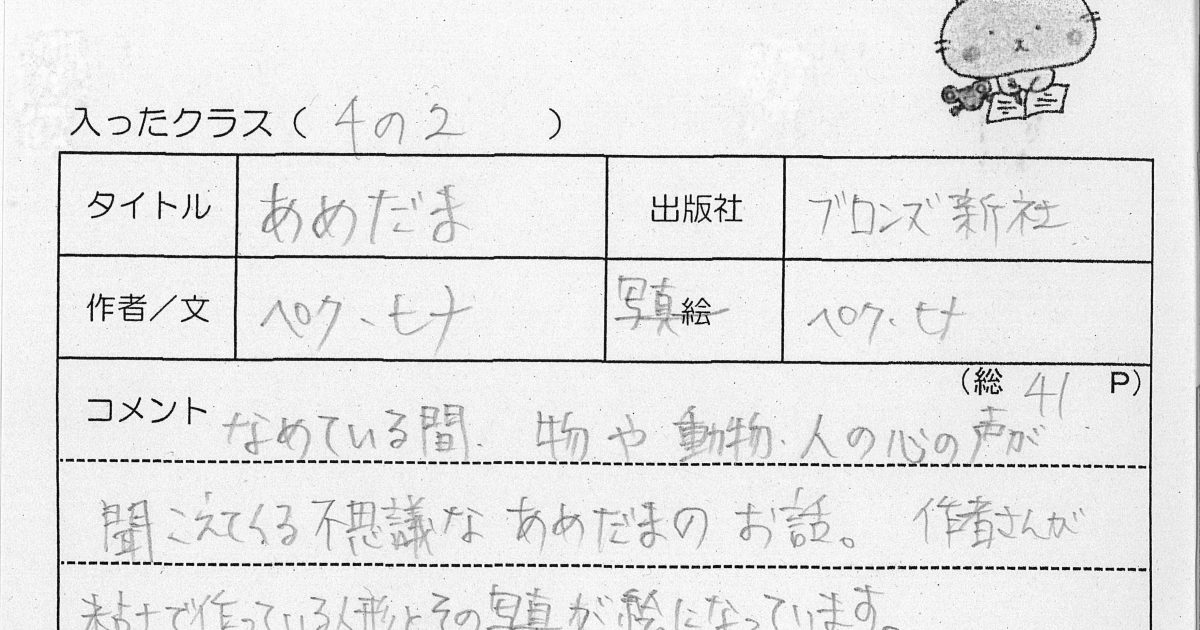 入ったクラス（ 4の2 ）
タイトル あめだま 出版社 ブロンズ新社
作者／文 ペク、ヒナ 写真 絵 ペク、ヒナ
（総 41 P）
コメント なめている間、物や動物、人の心の声が
聞こえてくる不思議なあめだまのお話。 作者さんが
粘土で作っている人形とその写真が絵になっています。